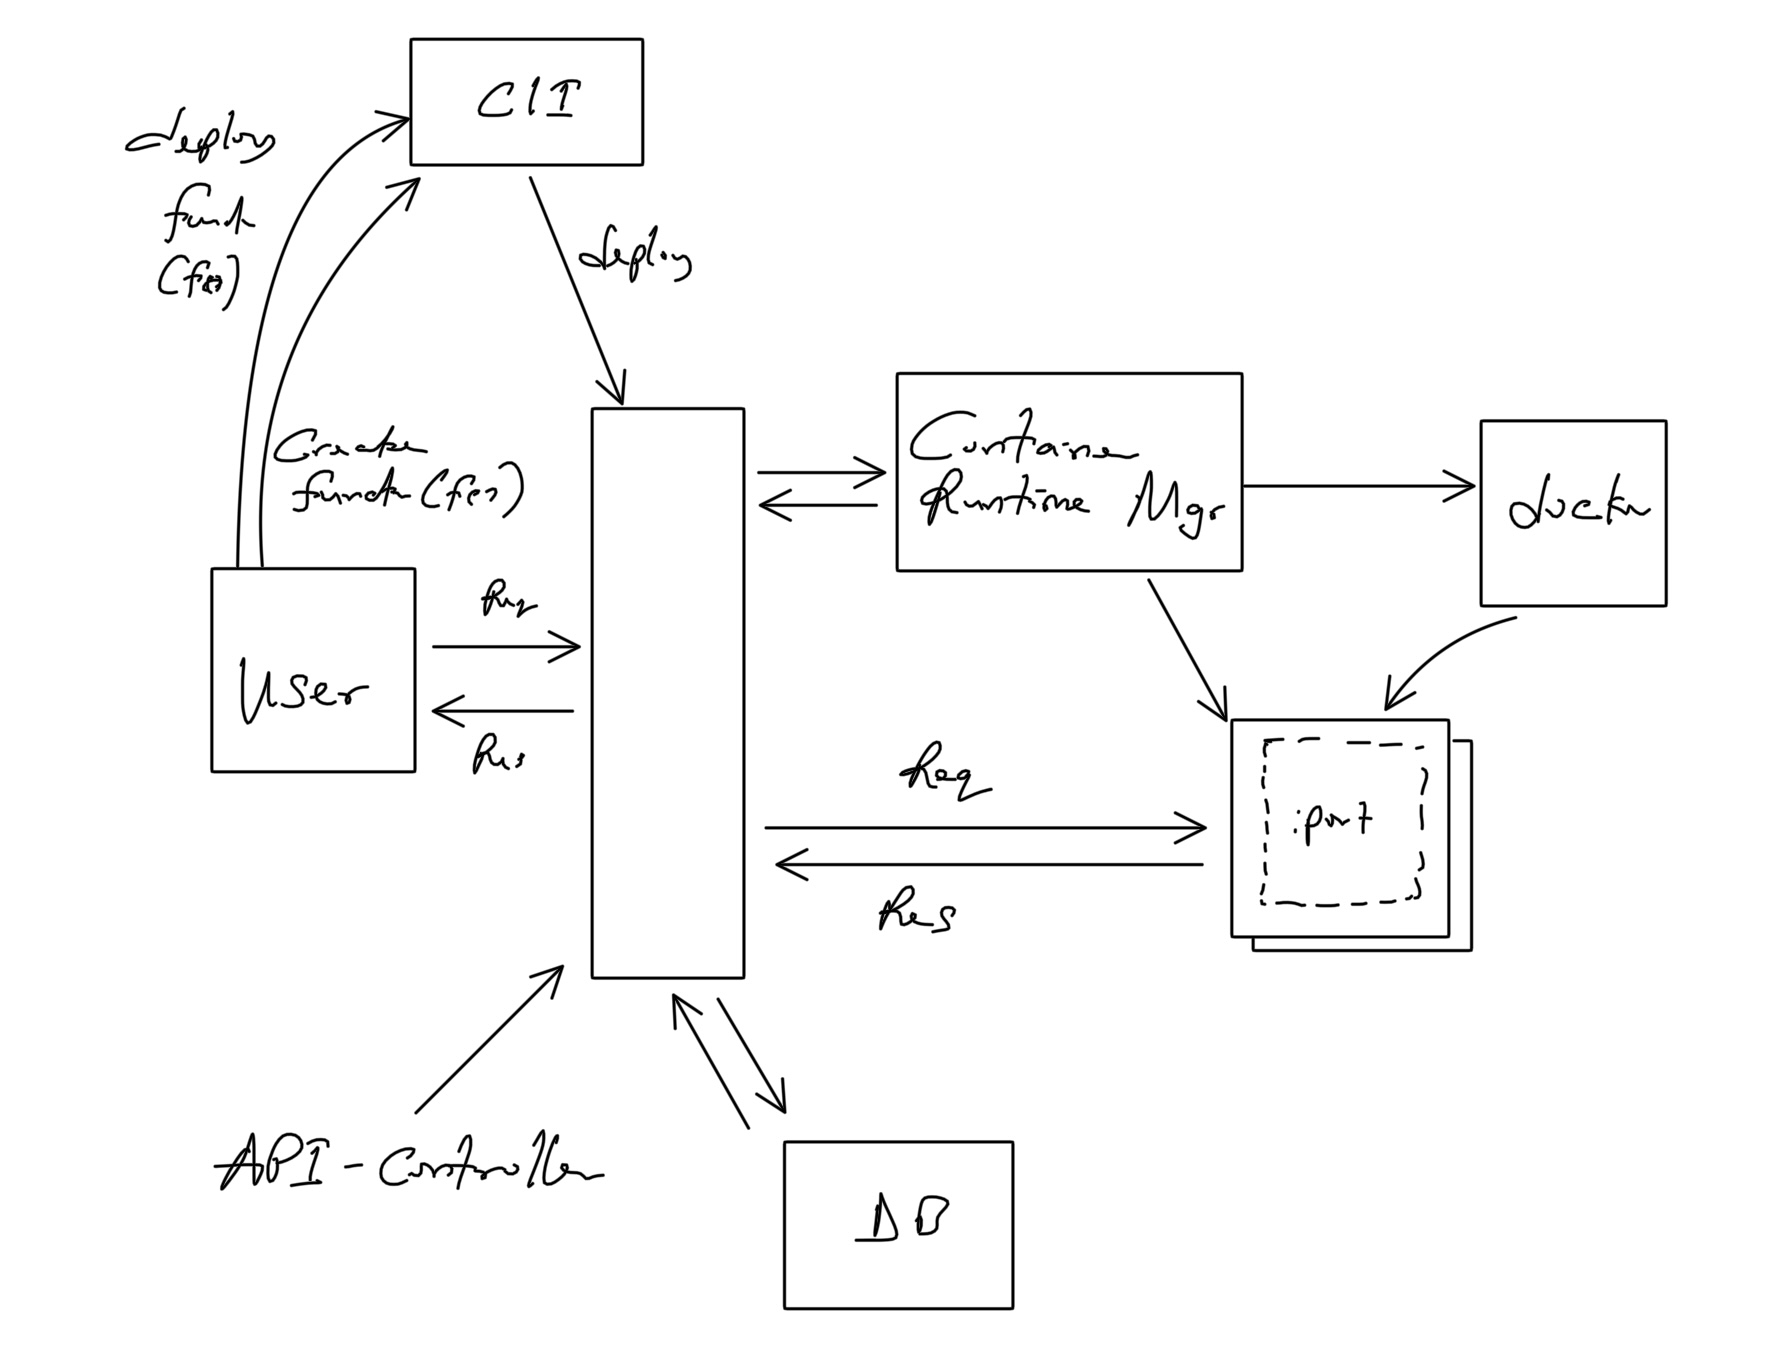 CLI
deploy
funct
(fx)
deploy
Create
funct (fx)
Container
Runtime Mgr
docker
Req
User
Res
Req
:port
Res
API-Controller
DB